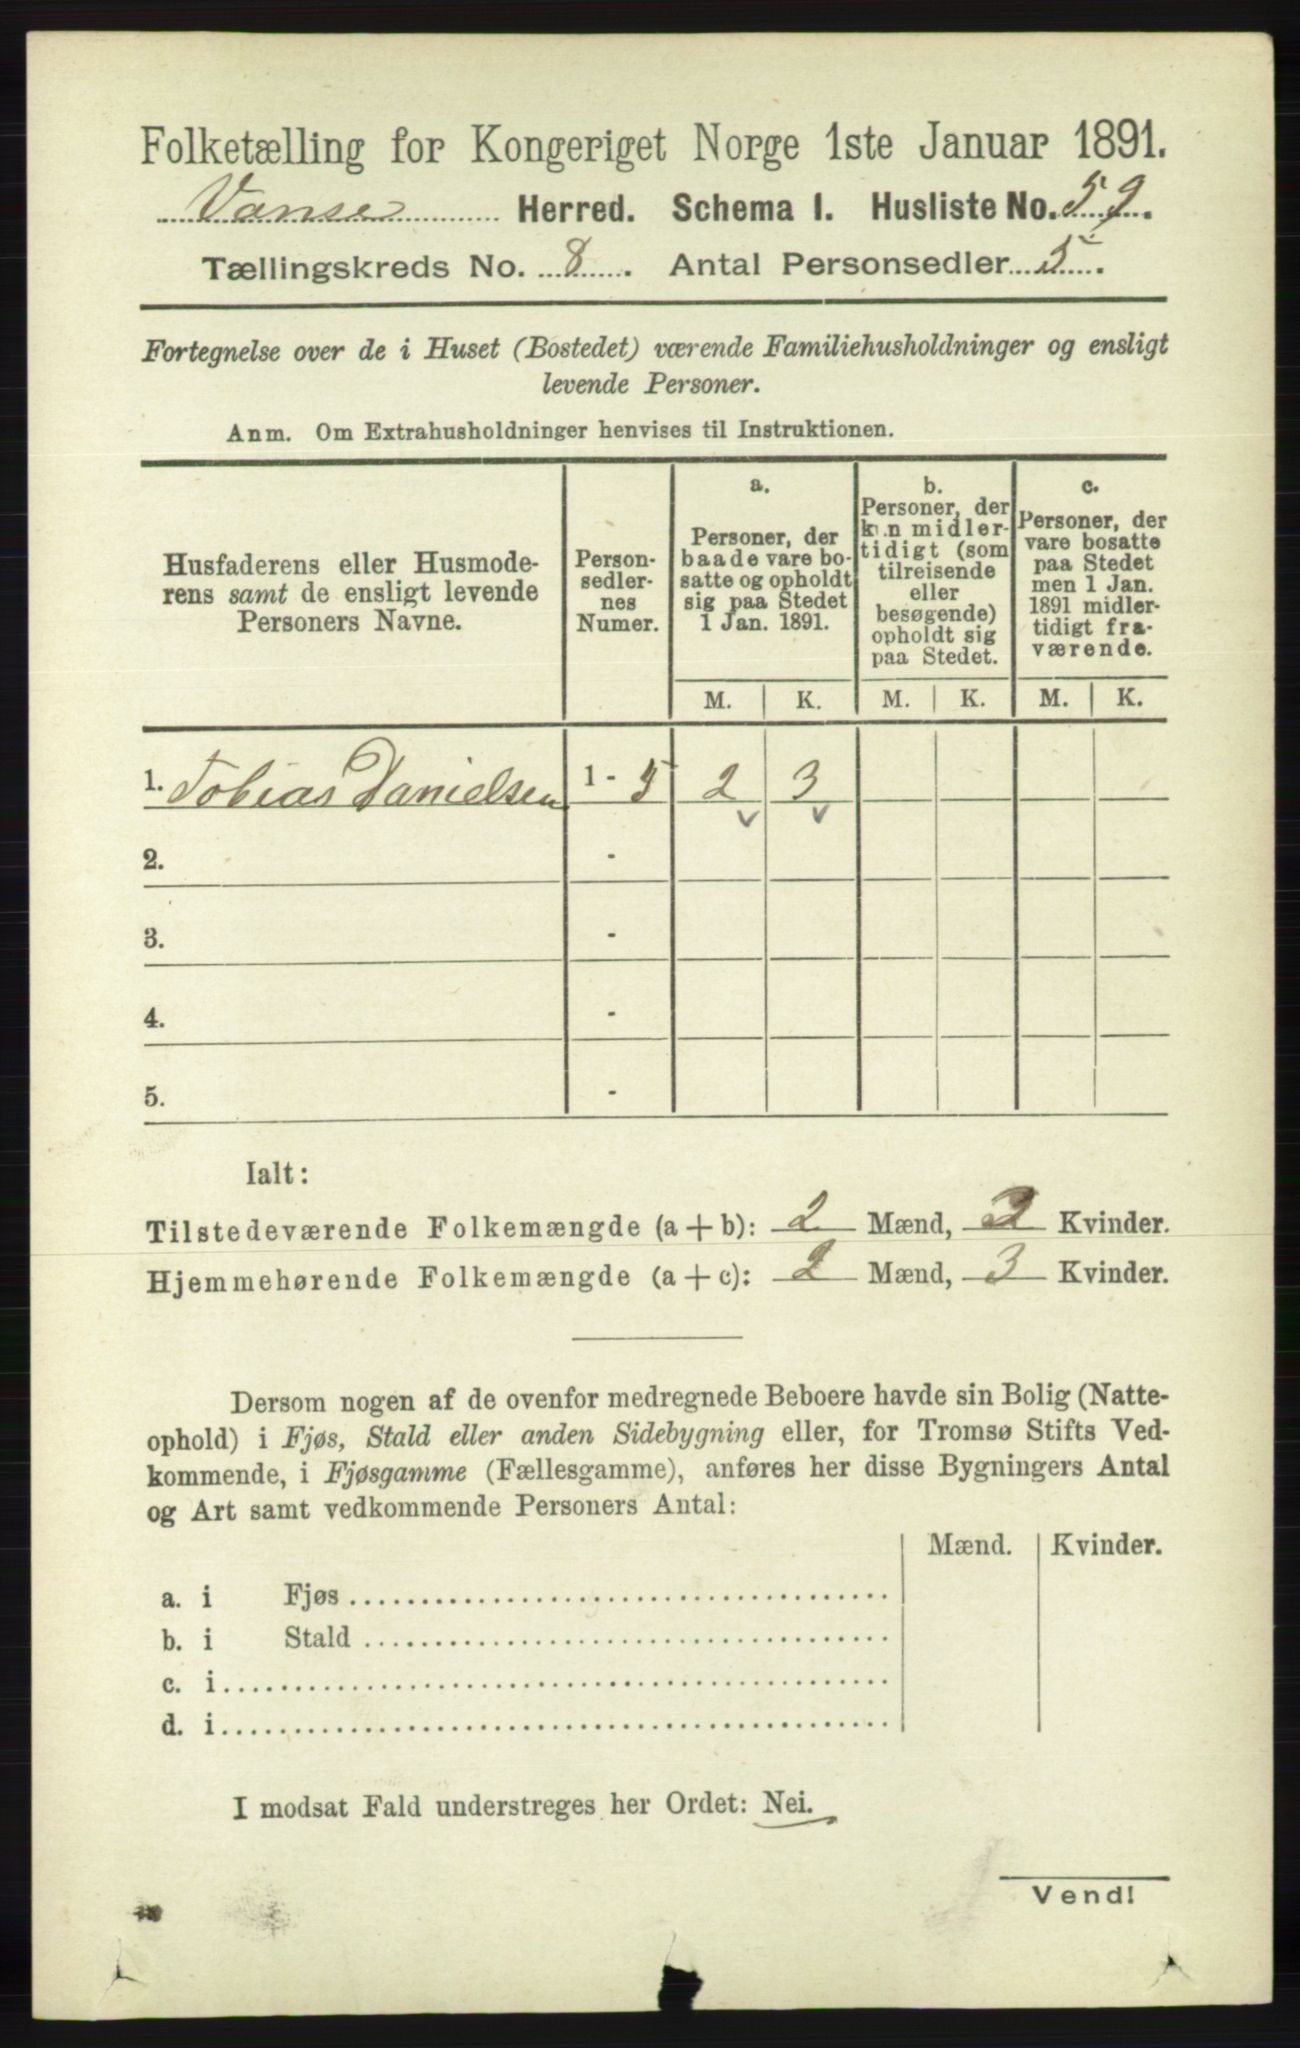 Folketælling for Kongeriget Norge 1ste Januar 1891.
Vanse Herred. Schema I. Husliste No. 59.
Tællingskreds No. 8. Antal Personsedler 5.
Fortegnelse over de i Huset (Bostedet) værende Familiehusholdninger og ensligt
levende Personer.
Anm. Om Extrahusholdninger henvises til Instruktionen.
Husfaderens eller Husmode-
rens samt de ensligt levende
Personers Navne.
Person-
sedler-
nes
Numer.
a.
Personer, der
baade vare bo-
satte og opholdt
sig paa Stedet
1 Jan. 1891.
b.
Personer, der
kun midler-
tidigt (som
tilreisende
eller
besøgende)
opholdt sig
paa Stedet.
c.
Personer, der
vare bosatte
paa Stedet
men 1 Jan.
1891 midler-
tidigt fra-
værende.
M. K. M. K. M. K.
1. Tobias Danielsen 1 - 5 2 3
2. -
3. -
4. -
5. -
Ialt:
Tilstedeværende Folkemængde (a + b): 2 Mænd, Kvinder.
Hjemmehørende Folkemængde (a + c): 2 Mænd, 3 Kvinder.
Dersom nogen af de ovenfor medregnede Beboere havde sin Bolig (Natte-
ophold) i Fjøs, Stald eller anden Sidebygning eller, for Tromsø Stifts Ved-
kommende, i Fjøsgamme (Fællesgamme), anføres her disse Bygningers Antal
og Art samt vedkommende Personers Antal:
Mænd. Kvinder.
a. i Fjøs
b. i Stald
c. i
d. i
I modsat Fald understreges her Ordet: Nei.
Vend!